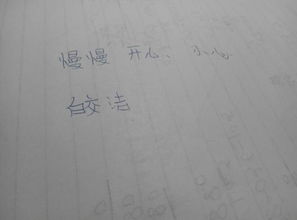 慢慢 开心、小心
皎洁